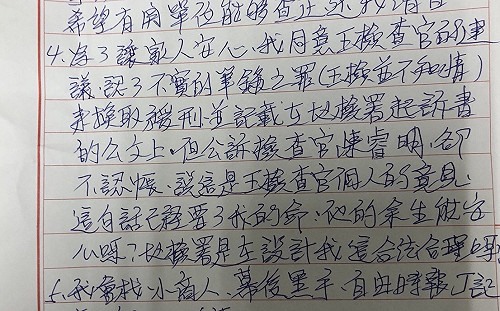 希望有關單位能夠查正還我清白
4.為了讓家人安心,我同意王檢查官的建
議,認了不實的筆錄之罪(王檢並不知情)
來換取緩刑並記載在地檢署起訴書
的公文上,但公訴檢查官陳睿明,卻
不認帳,說這是王檢查官個人的意見,
這句話已經要了我的命,他的余生能安
心嗎?地檢署是在設計我這合法合理嗎
5.我會找小商人、幕後黑手、自由時報丁記